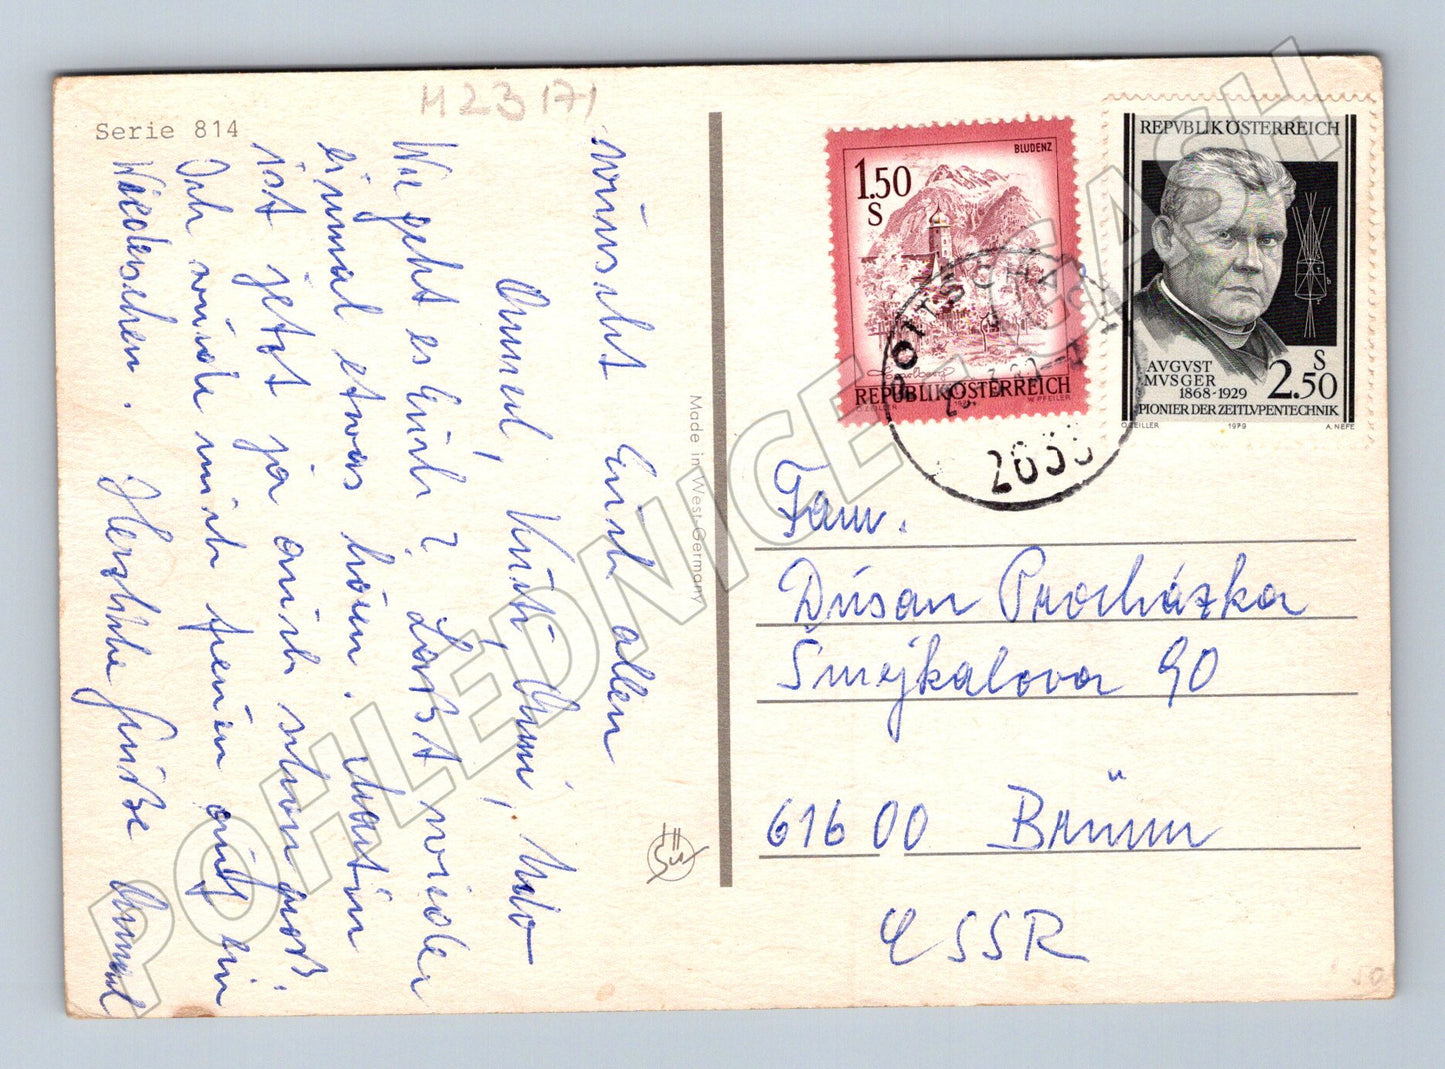 M 23171
Serie 814
wünscht Euch allen
Annerl, Kurt, Omi, Udo
Wie geht es Euch? Laßt wieder
einmal etwas hören. Martin
ist jetzt ja auch schon groß.
Ich würde mich freuen auf ein
Wiedersehen. Herzliche Grüße Annerl
Made in West-Germany
BLUDENZ
1.50
S
REPUBLIK ÖSTERREICH
O. ZEILLER
W. PFEILER
REPVBLIK ÖSTERREICH
AVGVST
MVSGER
1868-1929
S
2.50
PIONIER DER ZEITLVPENTECHNIK
O. ZEILLER 1979 A. NEFE
POITSCHACH
2633
Fam.
Dúsan Procházka
Šmejkalova 90
61600 Brünn
ČSSR
50
POHLEDNICE - CASH